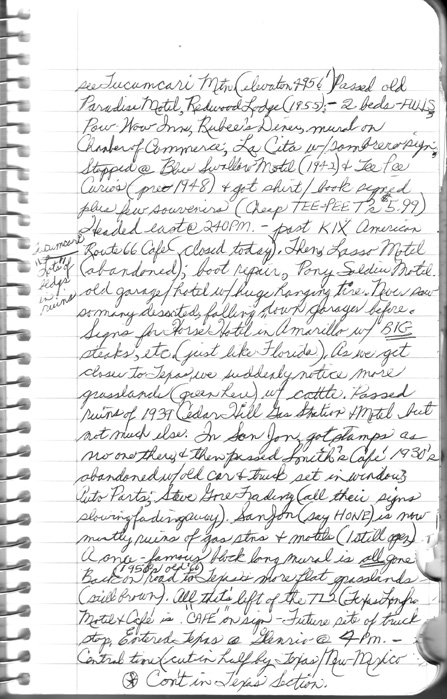 see Tucumcari Mtn (elevation 4956') Passed old
Paradise Motel, Redwood Lodge (1955) - 2 beds
Pow Wow Inn, Rubee's Diner, mural on
Chamber of Commerce, La Cita w/ sombrero sign,
Stopped @ Blue Swallow Motel (1942) & Tee Pee
Curios (pre 1948) & got shirt/book signed
plus few souvenirs (Cheap TEE-PEE T's $5.99)
Headed east @ 240 PM. - past KIX American
Route 66 Cafe (closed today). Then, Lasso Motel
(abandoned); boot repair, Pony Soldier Motel
old garage/hotel w/ huge hanging tire. Never saw
so many deserted, falling down garages before.
Signs for Horse Hotel in Amarillo w/ BIG
steaks, etc. (just like Florida). As we get
closer to Texas we suddenly notice more
grasslands (green here) w/ cattle. Passed
ruins of 1939 Cedar Hill Gas Station & Motel but
not much else. In San Jon, got stamps as
no one there, & then passed Smith's Cafe 1930's
abandoned w/ old car & truck set in windows
Auto Parts; Steve Gore Trading (all their signs
slowing fading away). San Jon (say HONE) is now
mostly ruins of gas stns & motels (1 still open)
A once-famous block long mural is all gone
(1950's old 66)
Back on road to Texas more flat grasslands
(still brown). All that's left of the
Motel & Cafe is "CAFE" on sign - Future site of truck
stop. Entered Texas @ Glenrio @ 4 PM. -
Central time (cut in half by Texas/New Mexico
* Cont in Texas Section.
Tucumcari
"
Lots of
bldgs
in
ruins